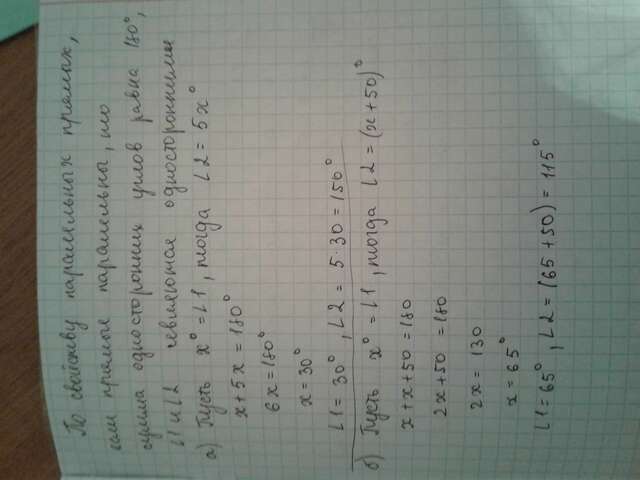 По свойству паралельных прямых,
если прямые паралельны, то
сумма односторонних углов равна 180°,
∠1 и ∠2 являются односторонними
а) Пусть x° = ∠1, тогда ∠2 = 5x°
x + 5x = 180°
6x = 180°
x = 30°
∠1 = 30°, ∠2 = 5·30 = 150°
б) Пусть x° = ∠1, тогда ∠2 = (x + 50)°
x + x + 50 = 180
2x + 50 = 180
2x = 130
x = 65°
∠1 = 65°, ∠2 = (65 + 50) = 115°